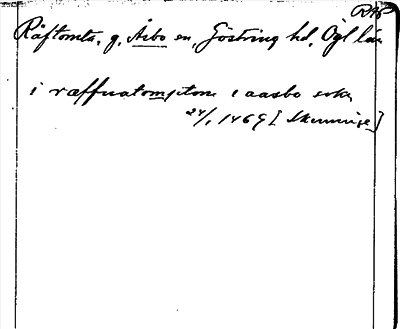 RAÄ
Räftomta, g, Åsbo sn, Göstring hd, Ögl län
i ræffuatomptom i aasbo sokn
24/1 1469 [Skenninge]